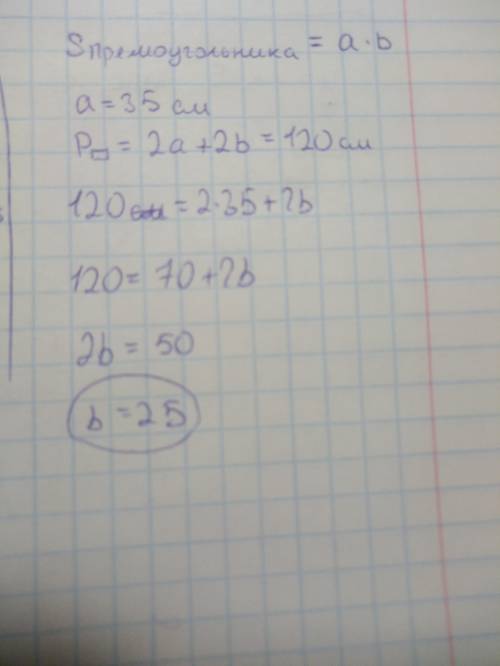 Sпрямоугольника = a·b
a = 35 см
P▭ = 2a + 2b = 120 см
120 = 2·35 + 2b
120 = 70 + 2b
2b = 50
b = 25